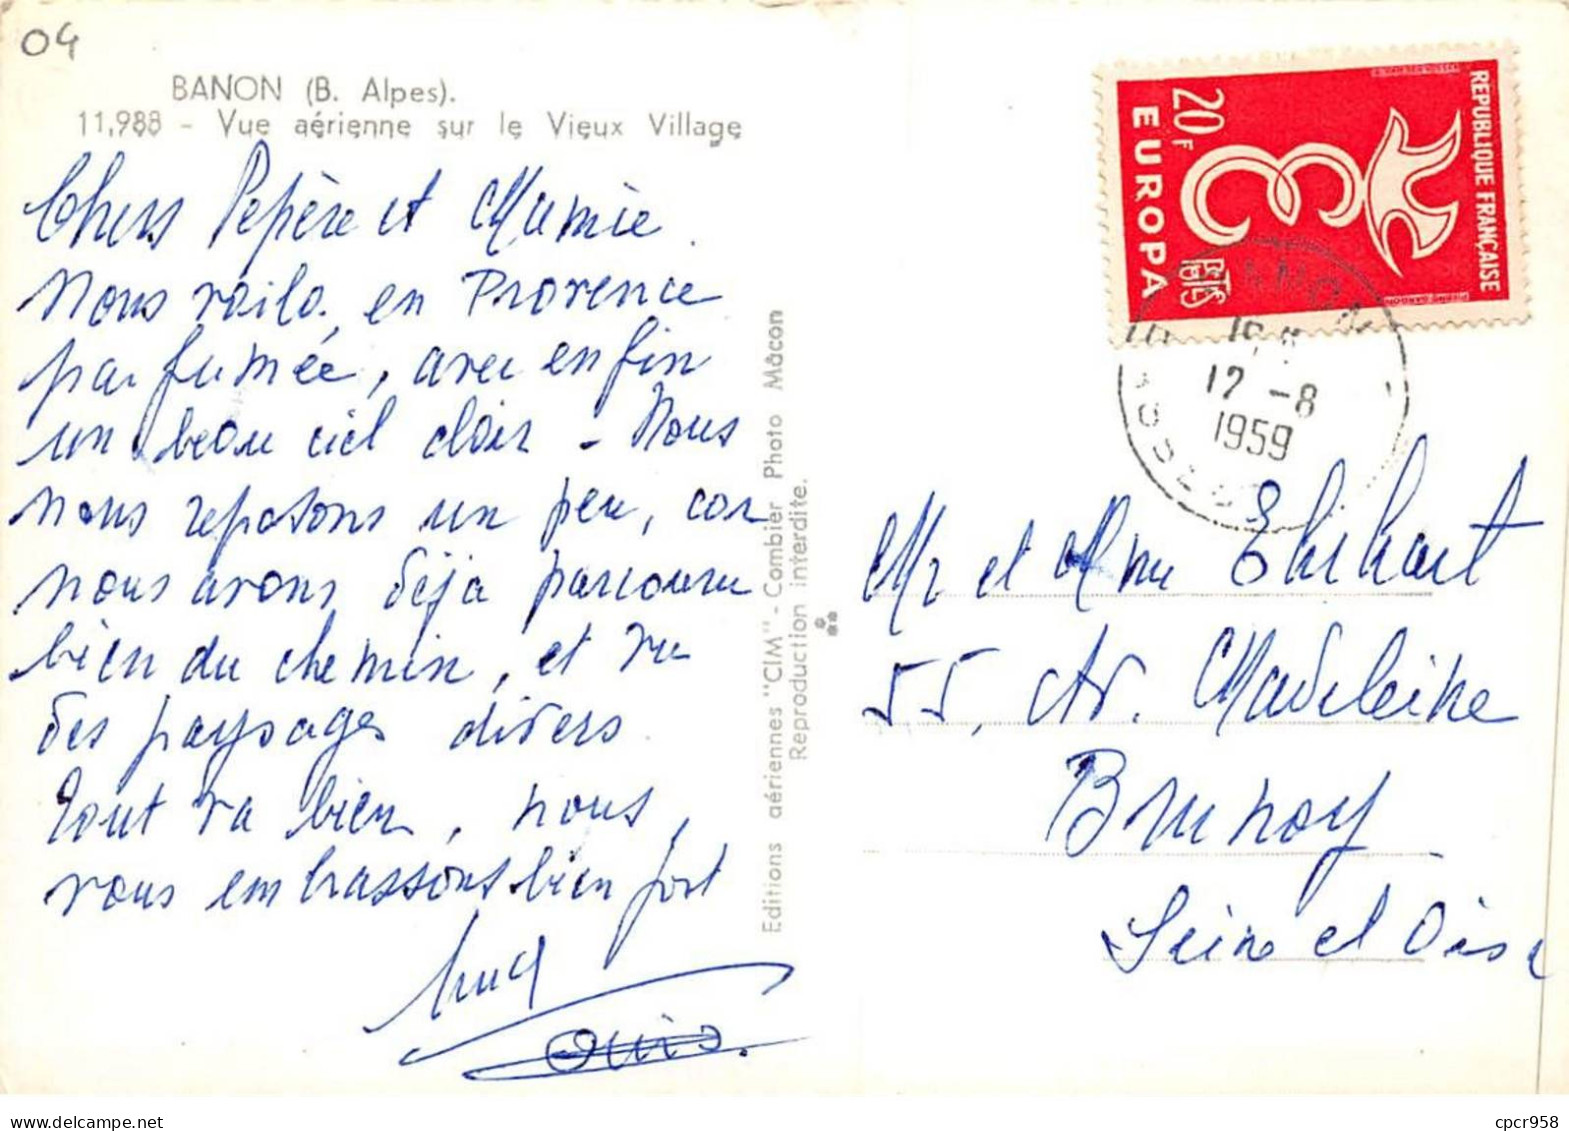 04
BANON (B. Alpes).
11,988 - Vue aérienne sur le Vieux Village
Chers Pépère et Mumie.
Nous voilà, en Provence
parfumée, avec enfin
un beau ciel clair - Nous
nous reposons un peu, car
nous avons déjà parcouru
bien du chemin, et vu
des paysages divers.
Tout va bien, nous
vous embrassons bien fort
Editions aériennes "CIM" - Combier Photo Mâcon
Reproduction interdite.
REPUBLIQUE FRANÇAISE
20F
EUROPA
POSTES
PIERRE GANDON
BANON
12 -8
1959
Mr et Mme Ehrhart
55, Av. Madeleine
Brunoy
Seine et Oise
cpcr958